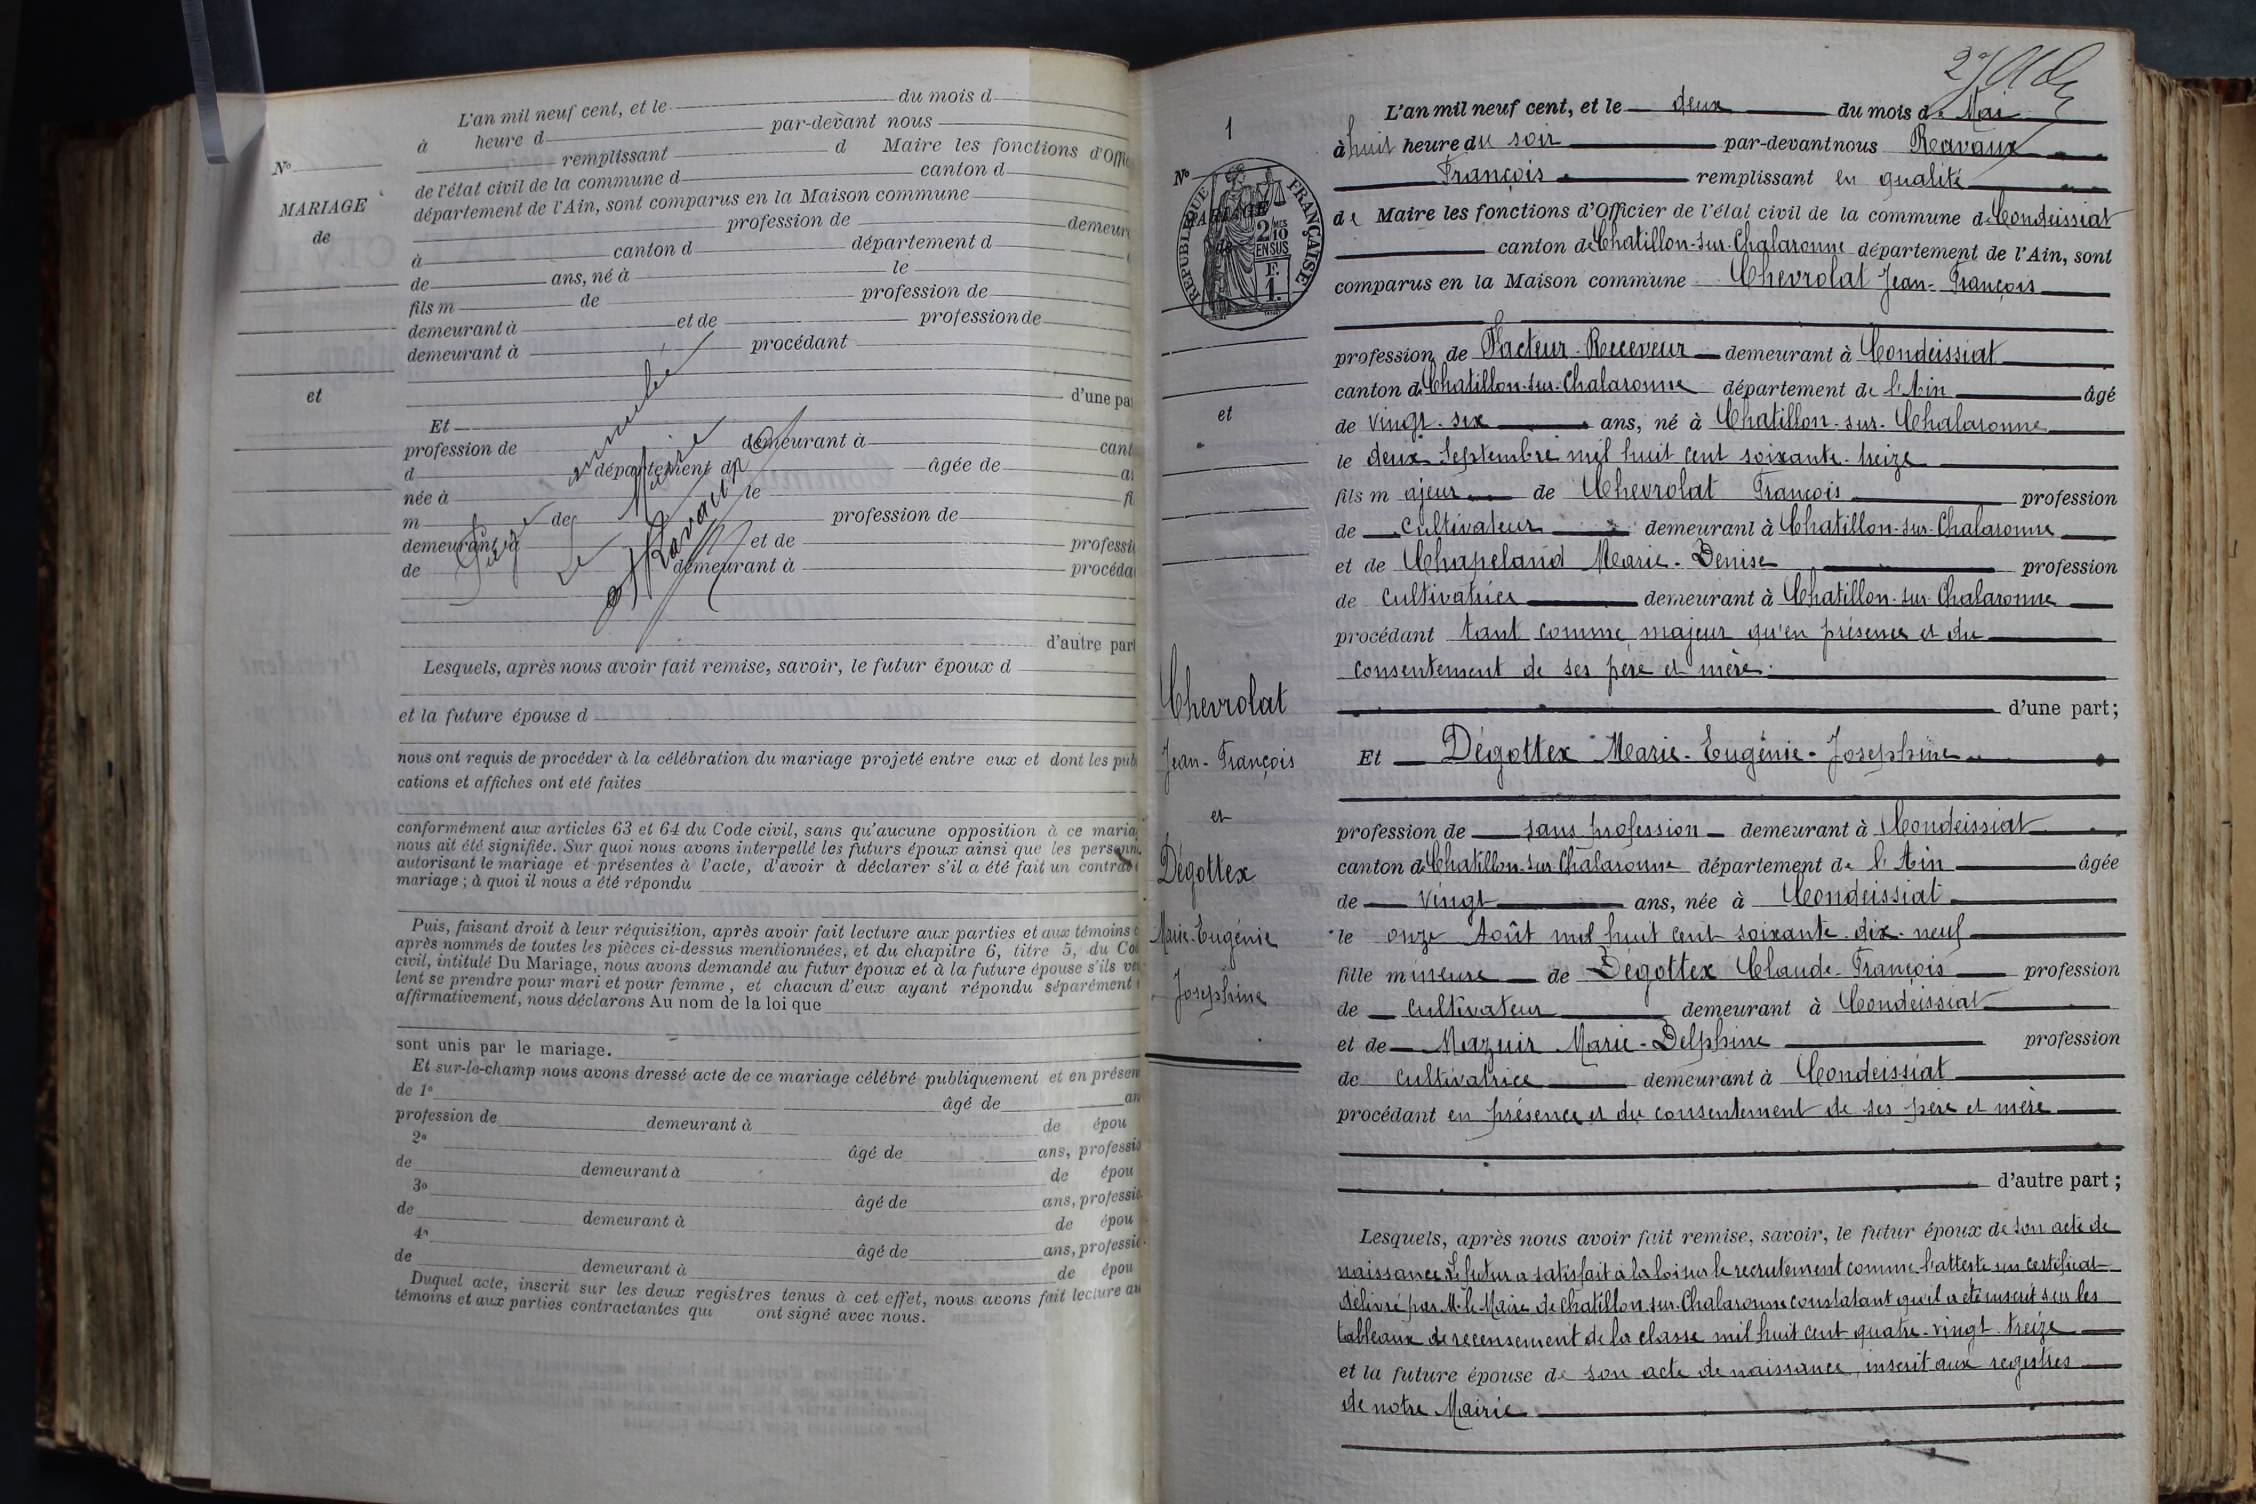 L'an mil neuf cent, et le du mois d
à heure d par-devant nous
remplissant d Maire les fonctions d'Offi
de l'état civil de la commune d canton d
département de l'Ain, sont comparus en la Maison commune
profession de demeur
à canton d département d
de ans, né à le
fils m de profession de
demeurant à et de profession de
demeurant à procédant
d'une pa
Et
profession de demeurant à cant
d département d âgée de a
née à le fi
m de profession de
demeurant à et de professi
de demeurant à procéda
d'autre part
Nº
MARIAGE
de
et
Page annulée
Le Maire
Ravaux
Lesquels, après nous avoir fait remise, savoir, le futur époux d
et la future épouse d
nous ont requis de procéder à la célébration du mariage projeté entre eux et dont les pub
cations et affiches ont eté faites
conformément aux articles 63 et 64 du Code civil, sans qu'aucune opposition à ce maria
nous ait été signifiée. Sur quoi nous avons interpellé les futurs époux ainsi que les personn
autorisant le mariage et présentes à l'acte, d'avoir à déclarer s'il a été fait un contrat
mariage ; à quoi il nous a été répondu
Puis, faisant droit à leur réquisition, après avoir fait lecture aux parties et aux témoins c
après nommés de toutes les pièces ci-dessus mentionnées, et du chapitre 6, titre 5, du Co
civil, intitulé Du Mariage, nous avons demandé au futur époux et à la future épouse s'ils ve
lent se prendre pour mari et pour femme, et chacun d'eux ayant répondu séparément
affirmativement, nous déclarons Au nom de la loi que
sont unis par le mariage.
Et sur-le-champ nous avons dressé acte de ce mariage célébré publiquement et en présen
de 1º âgé de an
profession de demeurant à de épou
2º âgé de ans, professio
de demeurant à de épou
3º âgé de ans, professio
de demeurant à de épou
4º âgé de ans, professio
de demeurant à de épou
Duquel acte, inscrit sur les deux registres tenus à cet effet, nous avons fait lecture au
témoins et aux parties contractantes qui ont signé avec nous.
1
Nº
MARIAGE
de
RÉPUBLIQUE FRANÇAISE
2/10 MES
EN SUS
F.
1.
et
Chevrolat
Jean-François
et
Dégottex
Marie-Eugénie
Joséphine
L'an mil neuf cent, et le deux du mois de Mai
à huit heure du soir par-devant nous Ravaux
François remplissant en qualité
de Maire les fonctions d'Officier de l'état civil de la commune de Condeissiat
canton de Chatillon-sur-Chalaronne département de l'Ain, sont
comparus en la Maison commune Chevrolat Jean-François
profession de Facteur-Receveur demeurant à Condeissiat
canton de Chatillon-sur-Chalaronne département de l'Ain âgé
de vingt-six ans, né à Chatillon-sur-Chalaronne
le deux Septembre mil huit cent soixante-treize
fils majeur de Chevrolat François profession
de cultivateur demeurant à Chatillon-sur-Chalaronne
et de Chapeland Marie-Denise profession
de cultivatrice demeurant à Chatillon-sur-Chalaronne
procédant tant comme majeur qu'en présence et du
consentement de ses père et mère.
d'une part;
Et Dégottex Marie-Eugénie-Joséphine
profession de sans profession demeurant à Condeissiat
canton de Chatillon-sur-Chalaronne département de l'Ain âgée
de vingt ans, née à Condeissiat
le onze Août mil huit cent soixante-dix-neuf
fille mineure de Dégottex Claude-François profession
de cultivateur demeurant à Condeissiat
et de Mazuir Marie-Delphine profession
de cultivatrice demeurant à Condeissiat
procédant en présence et du consentement de ses père et mère
d'autre part ;
Lesquels, après nous avoir fait remise, savoir, le futur époux de son acte de
naissance Le futur a satisfait à la loi sur le recrutement comme l'atteste un certificat
délivré par M. le Maire de Chatillon-sur-Chalaronne constatant qu'il a été inscrit sur les
tableaux de recensement de la classe mil huit cent quatre-vingt-treize
et la future épouse de son acte de naissance, inscrit aux registres
de notre Mairie